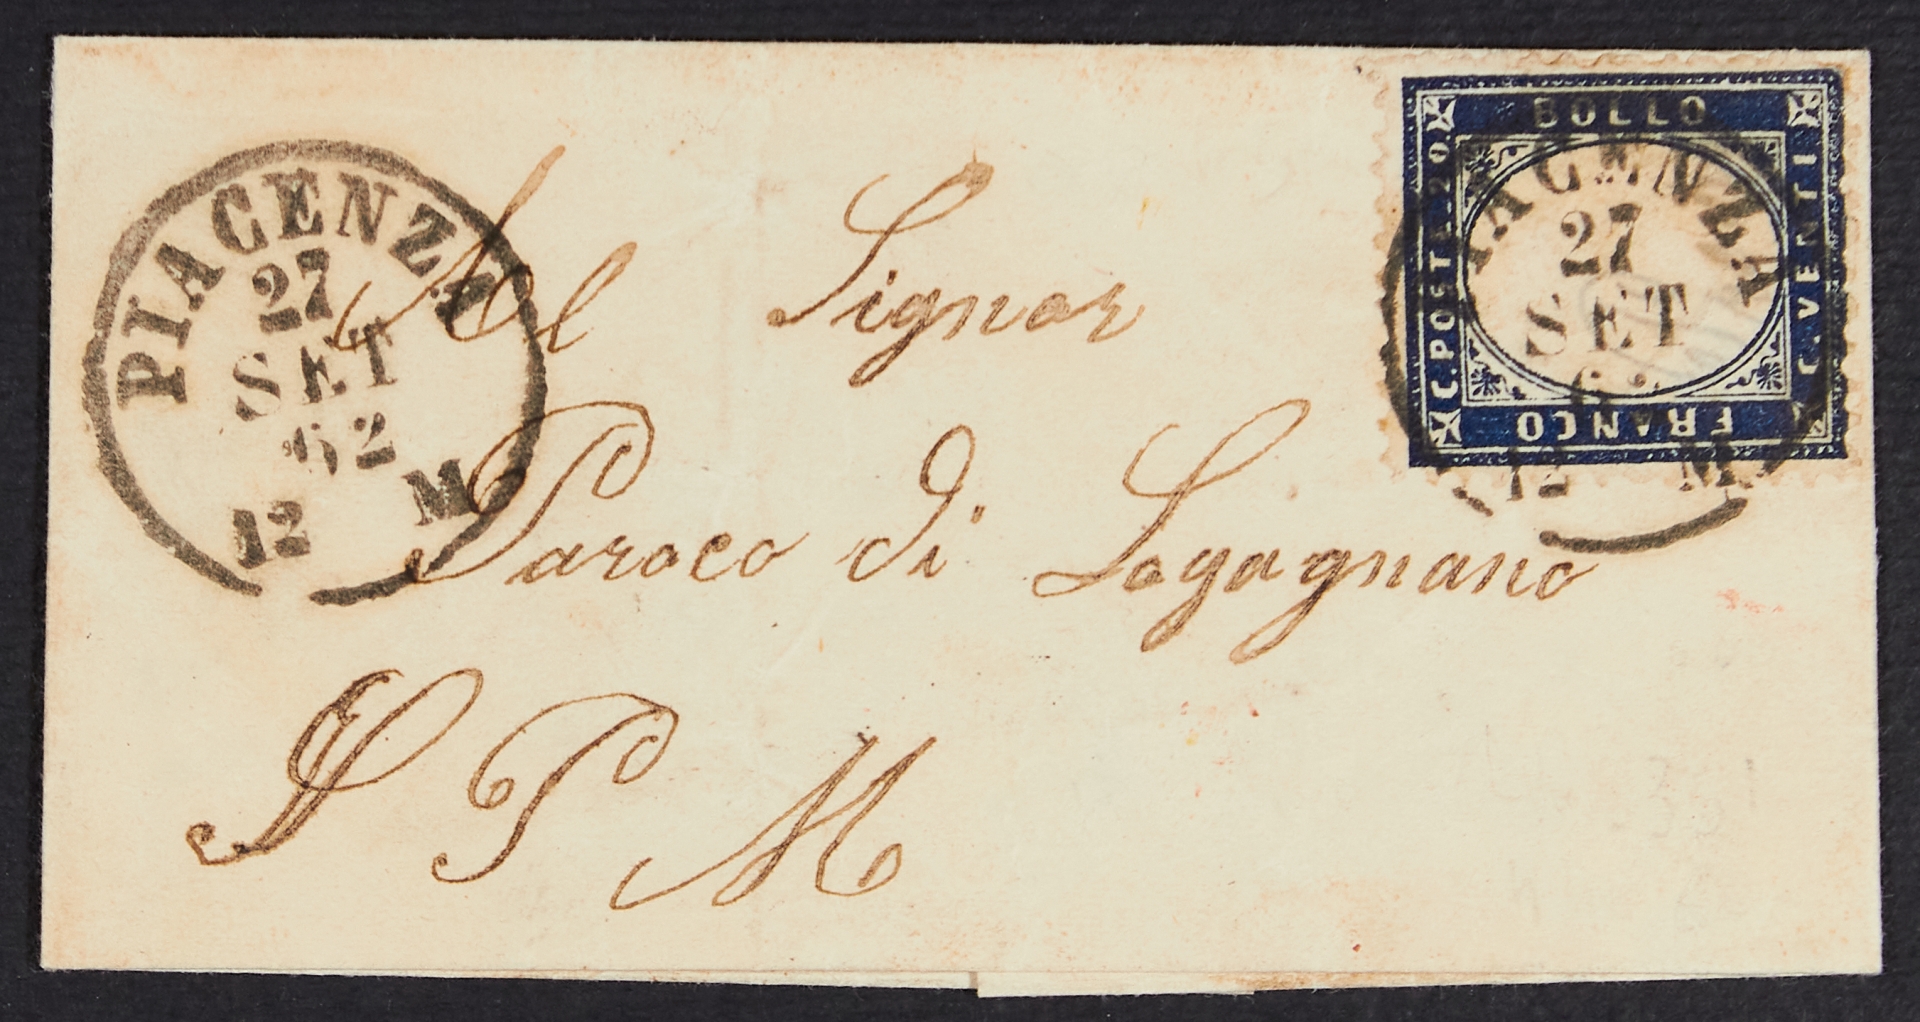 PIACENZA
27
SET
62
12 M
Al Signor
Paroco di Logagnano
S P M
BOLLO
C. POST. 20.
C. VENTI
FRANCO
PIACENZA
27
SET
62
12 M